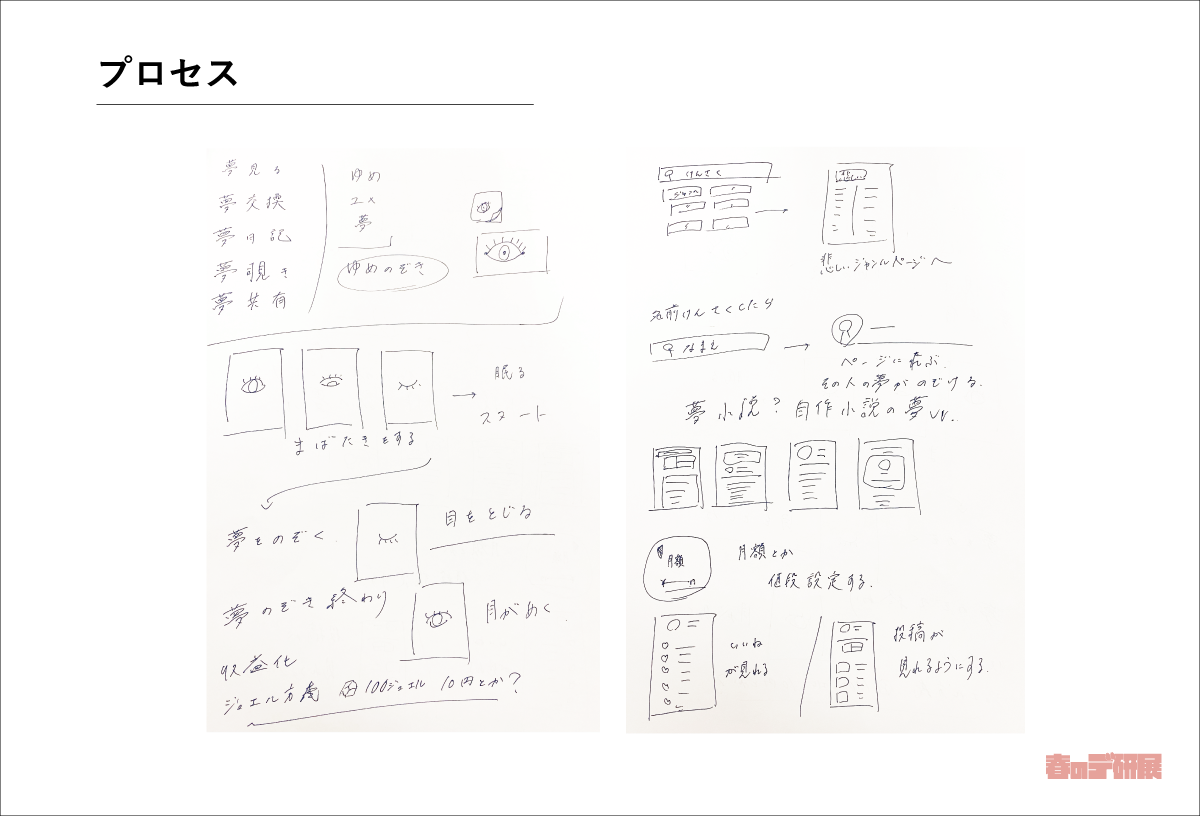 プロセス
夢見る
夢交換
夢日記
夢覗き
夢共有
ゆめ
ユメ
夢
ゆめのぞき
眠る
スタート
まばたきをする
夢をのぞく
目をとじる
夢のぞき終わり
目がめく
収益化
ジュエル方式
100ジュエル 10円とか?
けんさく
ジャンル
悲しい
悲しいジャンルページへ
名前けんさくしたら
なまえ
ページに飛ぶ
その人の夢がのぞける.
夢小説? 自作小説の夢ver.
月額
月額とか
値段設定する.
いいね
が見れる
投稿が
見れるようにする.
春のデ研展